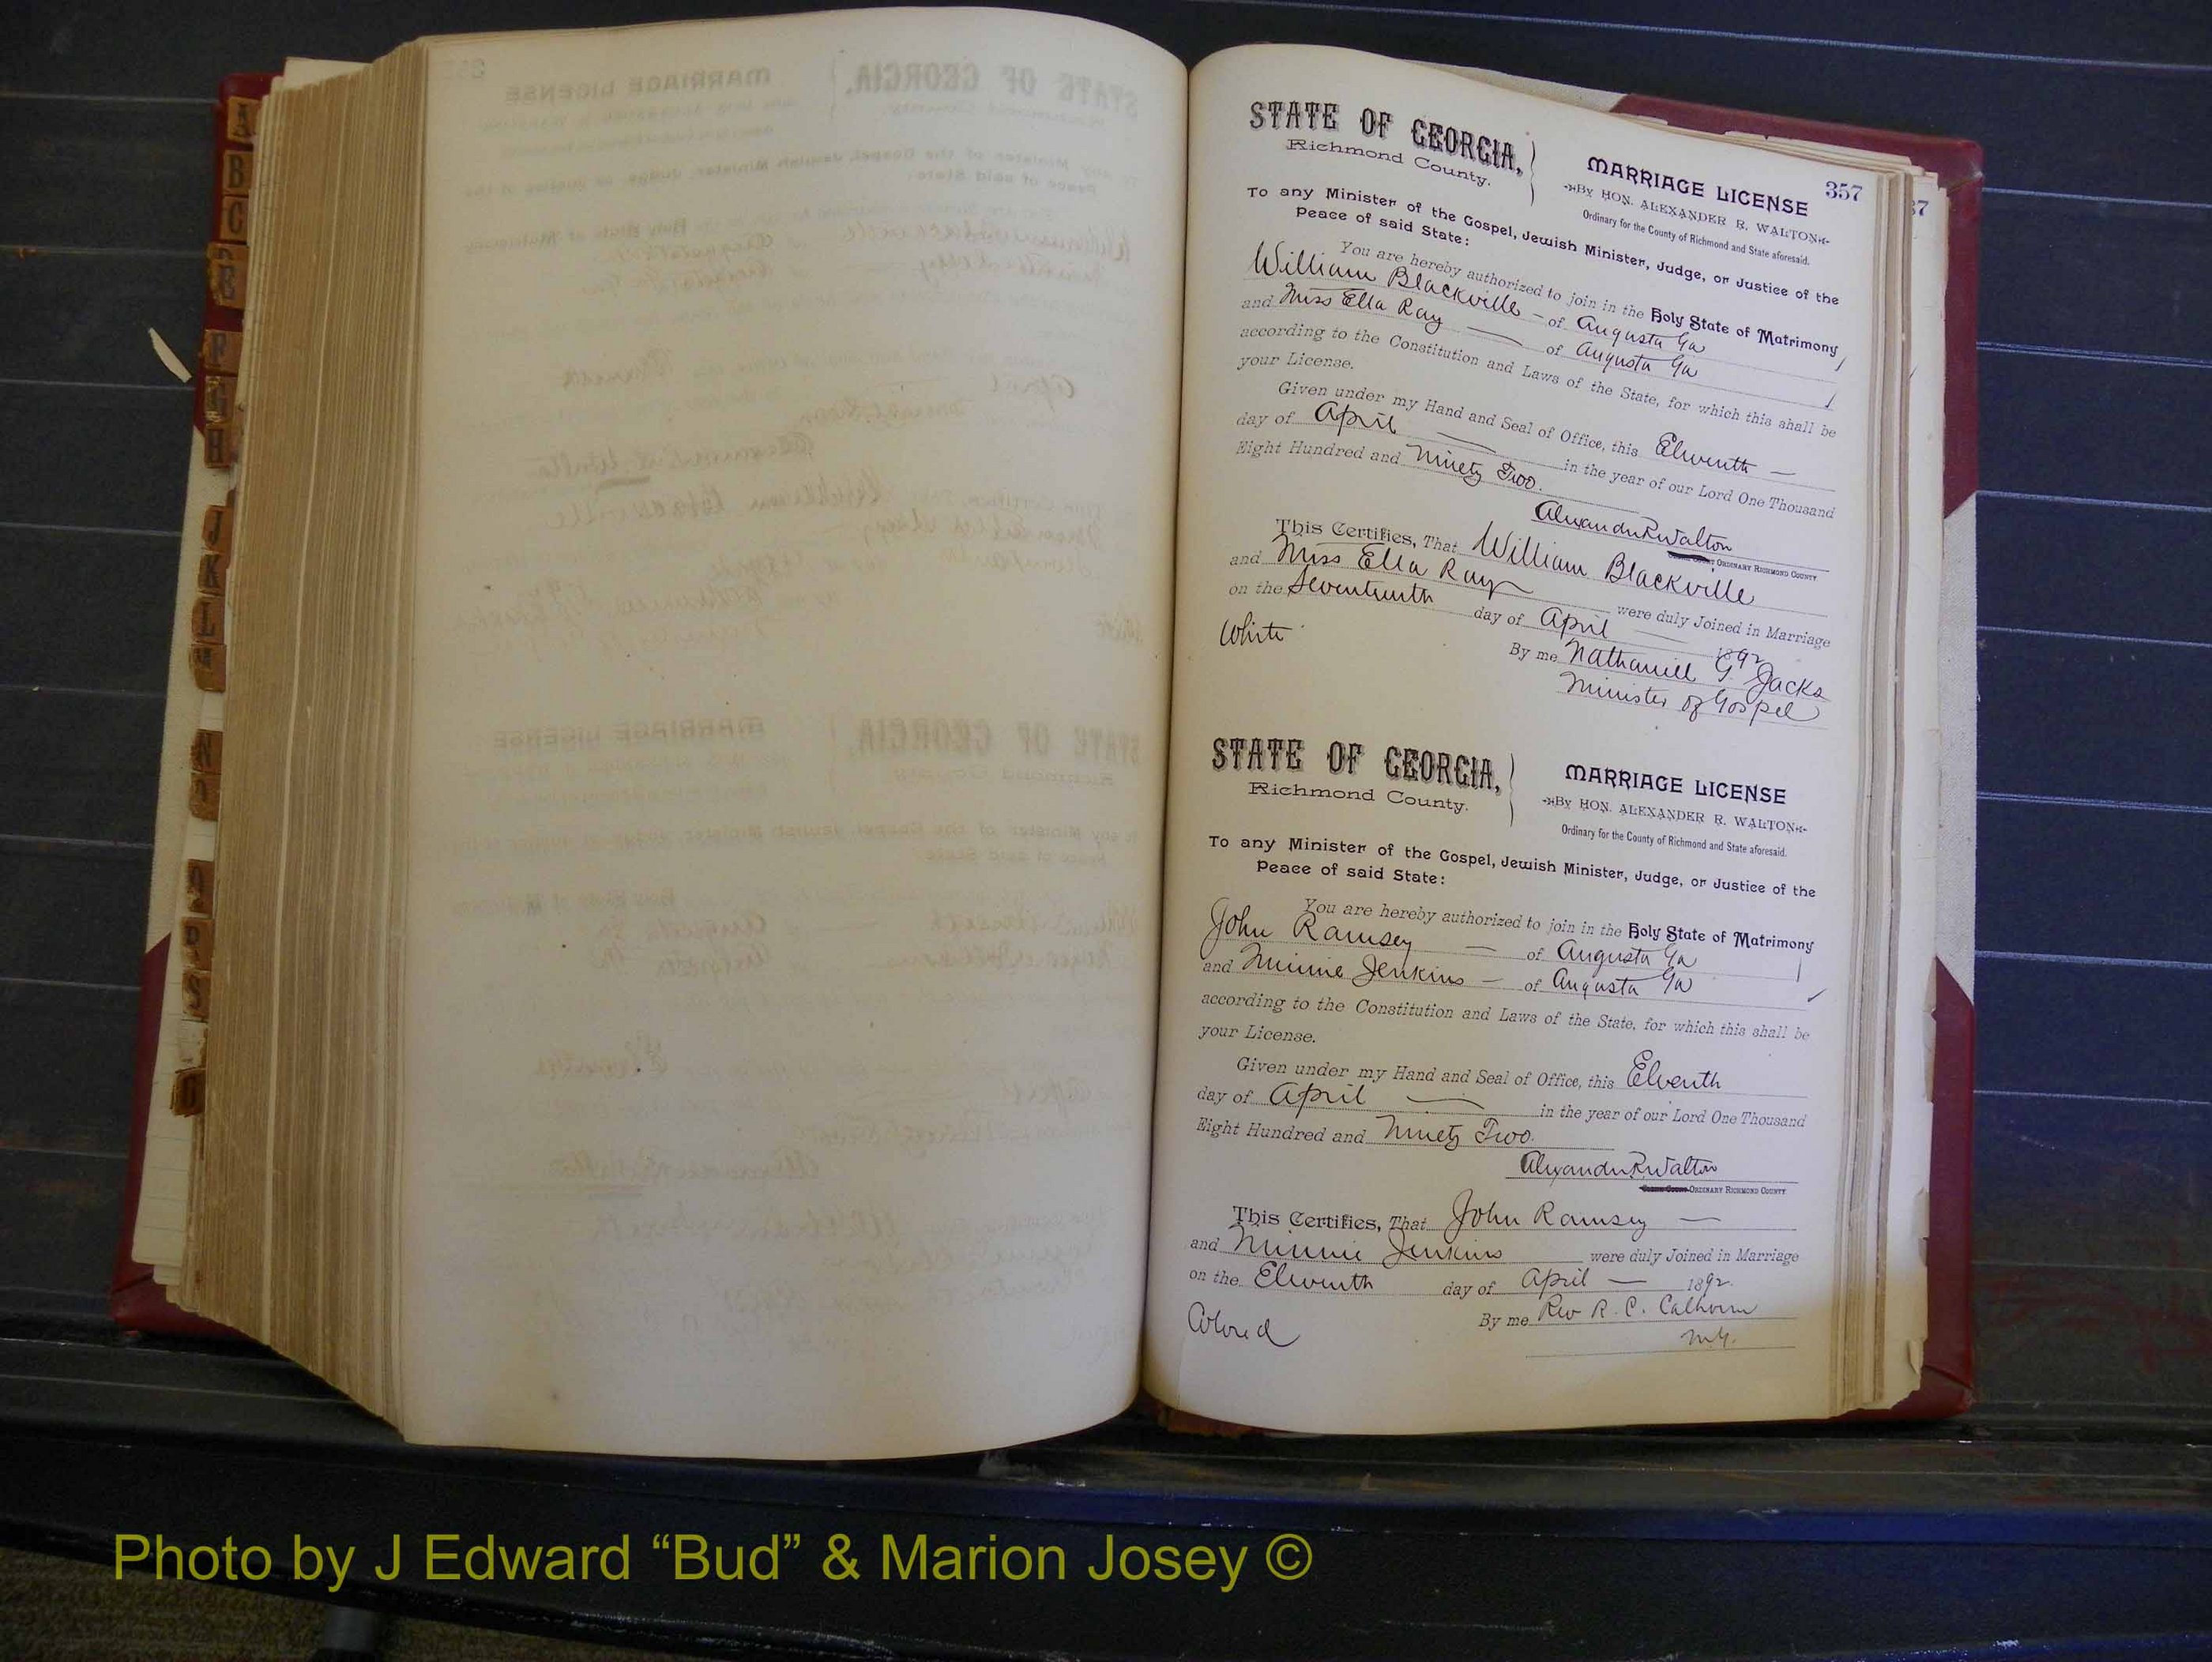 A
B
C
E
F
G
H
J
K
L
M
N
S
357
37
STATE OF GEORGIA,
Richmond County.
MARRIAGE LICENSE
By HON. ALEXANDER R. WALTON
Ordinary for the County of Richmond and State aforesaid.
To any Minister of the Gospel, Jewish Minister, Judge, or Justice of the
Peace of said State:
You are hereby authorized to join in the Holy State of Matrimony
William Blackville - of Augusta Ga
and Miss Ella Ray - of Augusta Ga
according to the Constitution and Laws of the State, for which this shall be
your License.
Given under my Hand and Seal of Office, this Elventh -
day of April - in the year of our Lord One Thousand
Eight Hundred and Ninety Two.
Alexander R Walton
ORDINARY RICHMOND COUNTY
This Certifies, That William Blackville
and Miss Ella Ray were duly Joined in Marriage
on the Seventeenth day of April 1892
White
By me Nathaniell G. Jacks
Minister of Gospel
STATE OF GEORGIA,
Richmond County.
MARRIAGE LICENSE
By HON. ALEXANDER R. WALTON
Ordinary for the County of Richmond and State aforesaid.
To any Minister of the Gospel, Jewish Minister, Judge, or Justice of the
Peace of said State:
You are hereby authorized to join in the Holy State of Matrimony
John Ramsey - of Augusta Ga
and Minnie Jenkins - of Augusta Ga
according to the Constitution and Laws of the State, for which this shall be
your License.
Given under my Hand and Seal of Office, this Elventh
day of April - in the year of our Lord One Thousand
Eight Hundred and Ninety Two.
Alexander R Walton
ORDINARY RICHMOND COUNTY
This Certifies, That John Ramsey -
and Minnie Jenkins were duly Joined in Marriage
on the Elventh day of April - 1892.
By me Rev R. C. Calhoun
Colored
M.G.
Photo by J Edward “Bud” & Marion Josey ©